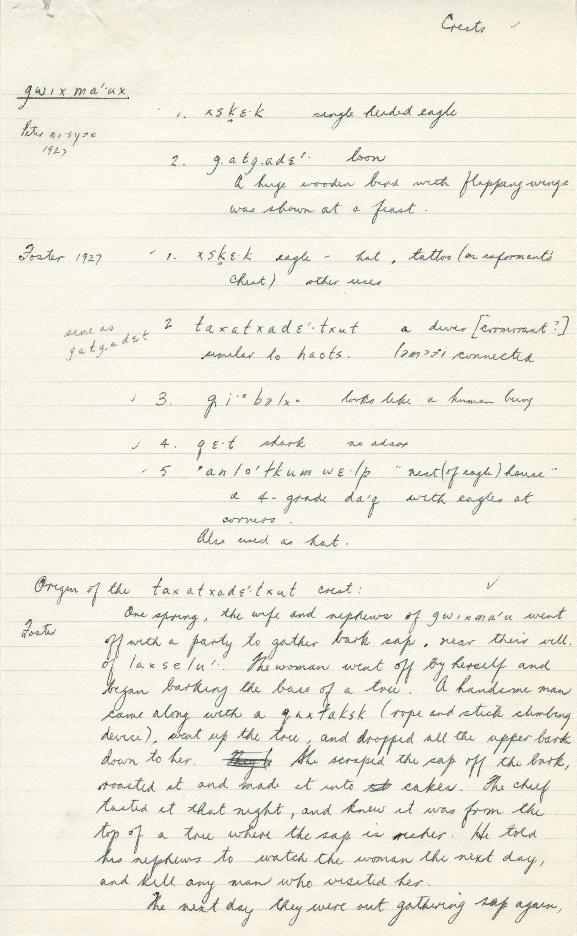 Crests ✓
gwixma'ux
1. xsḵɛ·k single headed eagle
Peter
1927
2. g.atg.adɛ'· loon
A huge wooden bird with flapping wings
was shown at a feast.
Foster 1927 1. xsḵɛ·k eagle - hat, tattoo (on informant's
chest) other uses
same as
gatg.adɛt
2 taxatxadɛ'·txut a diver [cormorant?]
similar to haots. connected
✓ 3. gi·bəlx· looks like a human being
✓ 4. qɛ·t shark no adaox
5 'anlo'·tkum wɛ·lp "nest (of eagle) house"
a 4-grade da'q with eagles at
corners.
Also used as hat.
Origin of the taxatxadɛ'·txut crest: ✓
Foster
One spring, the wife and nephews of gwixma'u went
off with a party to gather bark sap, near their vill.
of laxsɛlu'·. The woman went off by herself and
began barking the base of a tree. A handsome man
came along with a gaxtaksk (rope and stick climbing
device), went up the tree, and dropped all the upper bark
down to her. She scraped the sap off the bark,
roasted it and made it into cakes. The chief
tasted it that night, and knew it was from the
top of a tree where the sap is richer. He told
his nephews to watch the woman the next day,
and kill any man who visited her.
The next day they were out gathering sap again,